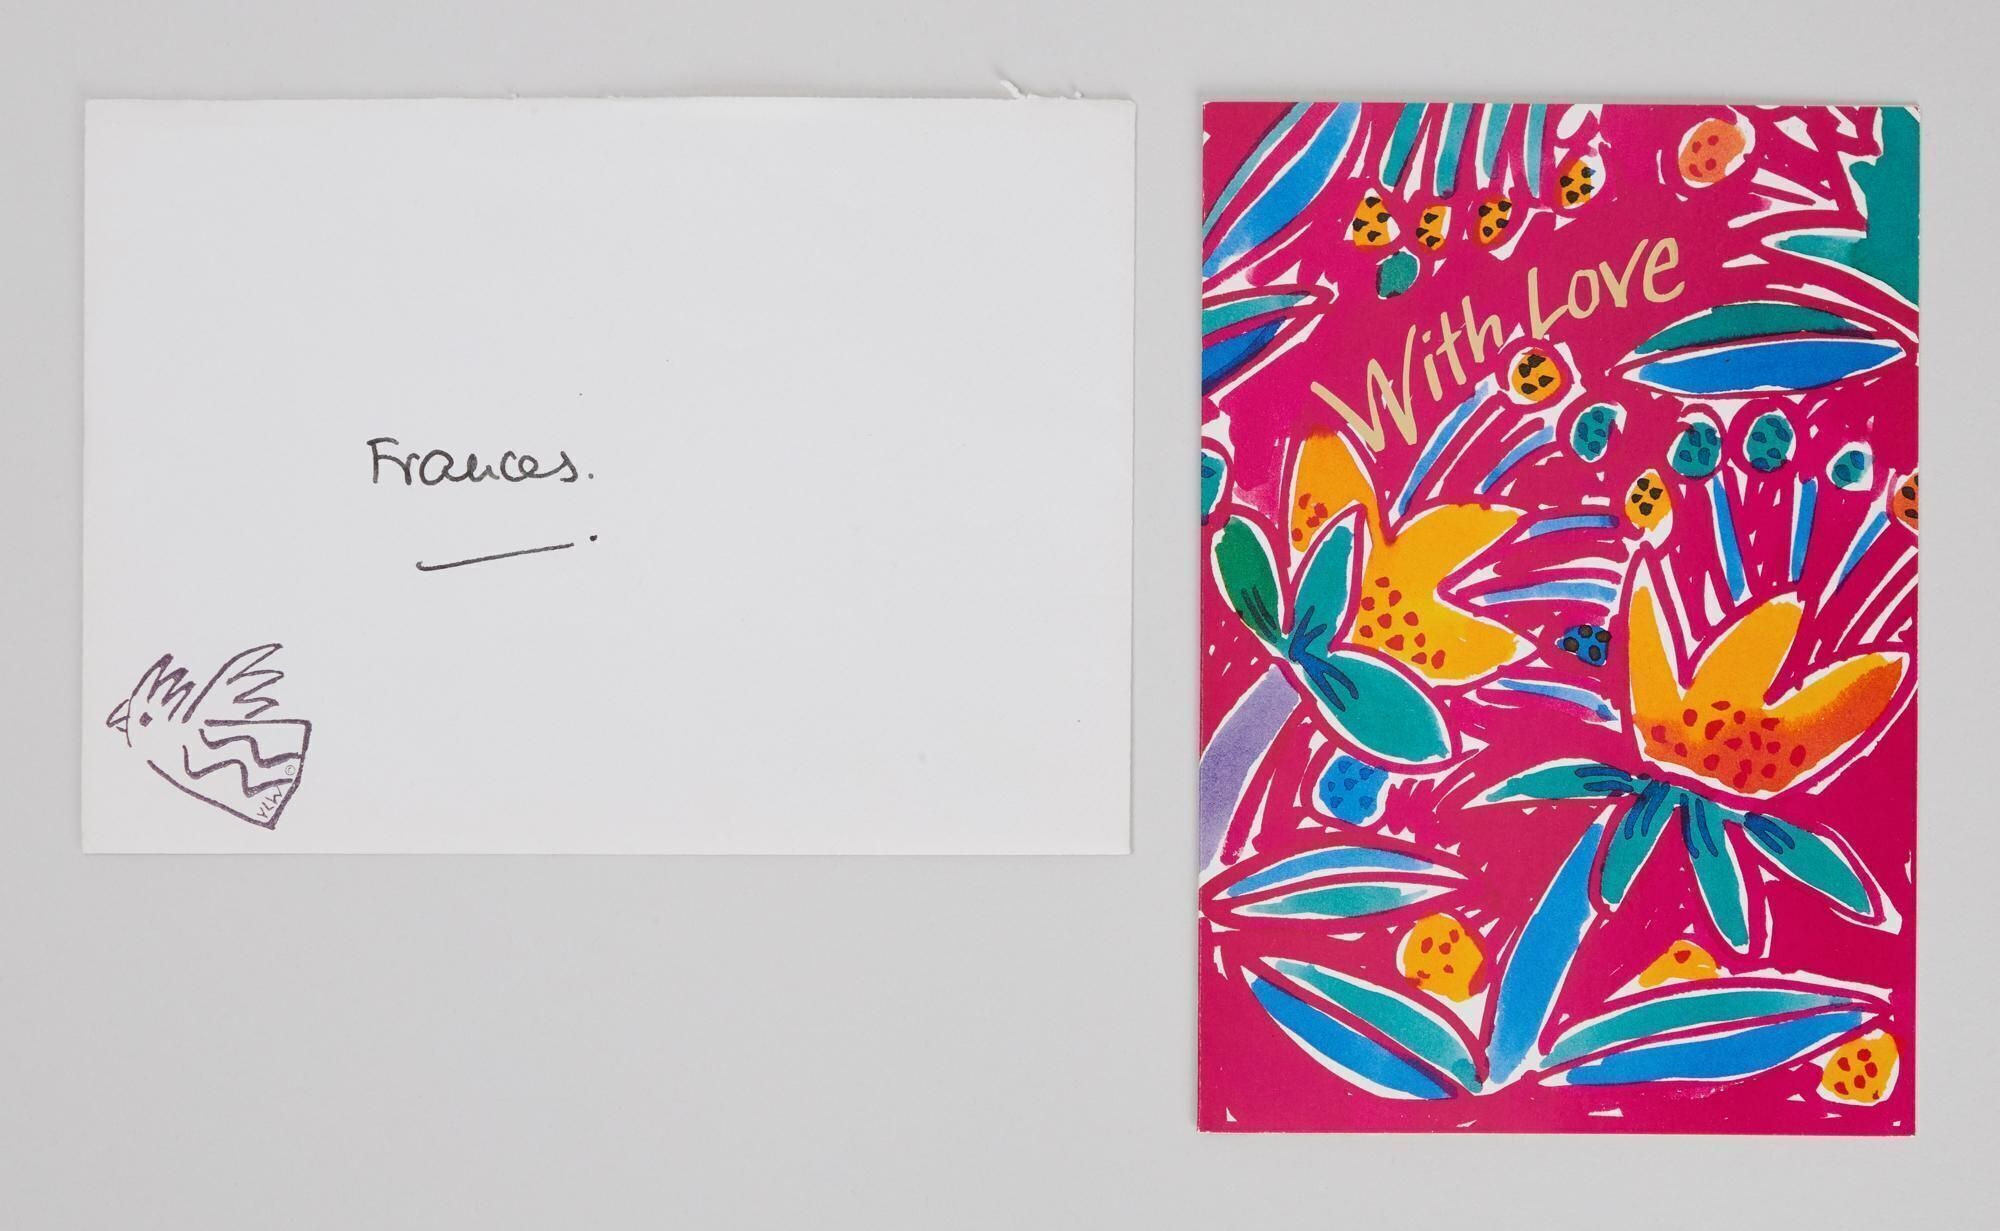 Frances.
© YLW
With Love